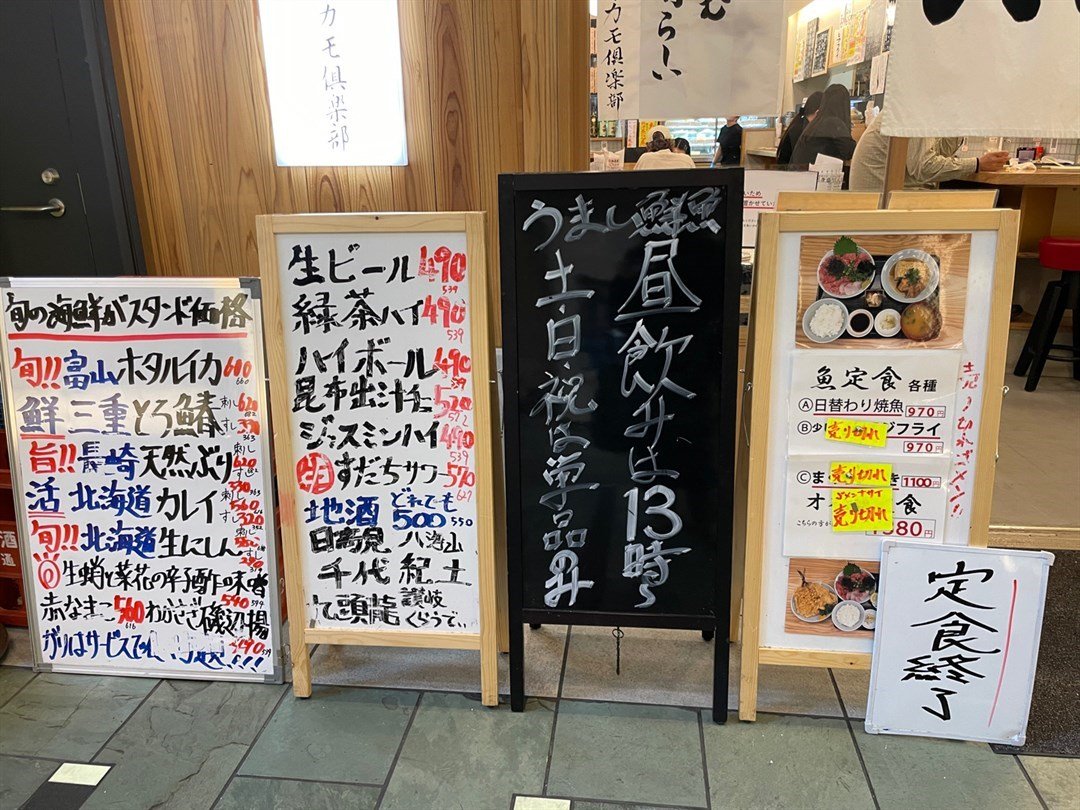 カモ倶楽部
む
らしい
カモ倶楽部
旬の海鮮がスタンド価格
旬!! 富山ホタルイカ 600 660
鮮 三重とろ鯖 刺し 620 すし 330 363
旨!! 長崎天然ぶり 刺し 620 すし 330
活 北海道カレイ 刺し 560 すし 320
旬!! 北海道生にしん 刺し
生蛸と菜花の辛子酢味噌
赤なまこ 560 616 わかさぎ磯辺揚 540 594
ガリはサービスでし
生ビール 490 539
緑茶ハイ 490 539
ハイボール 490 539
昆布出汁 520 572
ジャスミンハイ 490 539
生 すだちサワー 570 627
地酒 どれでも 500 550
日高見 八海山
千代 紀土
九頭龍 讃岐くらうでぃ
うまし鮮魚
昼飲みは13時〜
土・日・祝は単品のみ
魚定食 各種
Ⓐ日替わり焼魚 970円
Ⓑ少 ジフライ 970円
売り切れ
Ⓒま き 1100円
売り切れ
オ 食
売り切れ
380円
定食終了